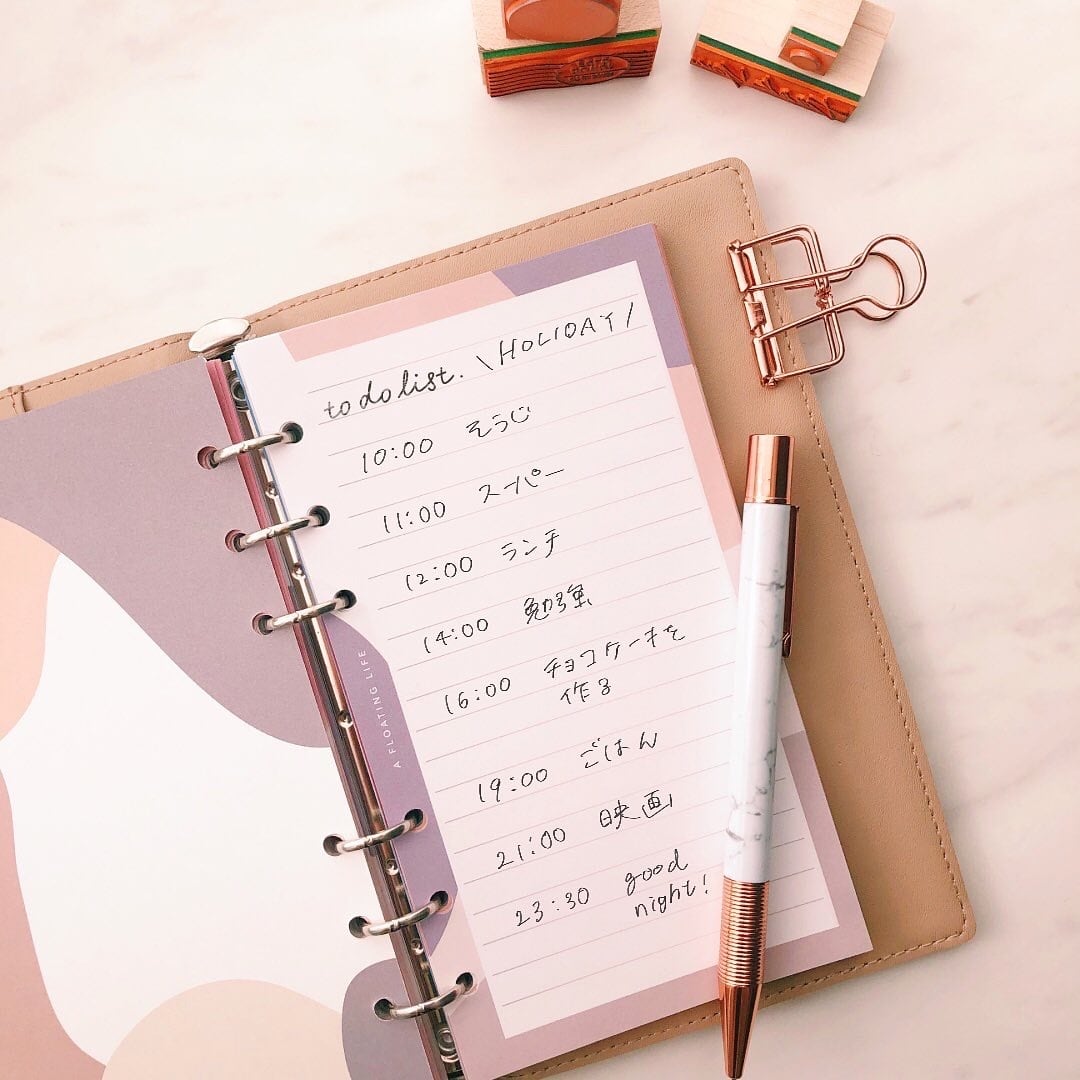 to do list. \HOLIDAY/
10:00 そうじ
11:00 スーパー
12:00 ランチ
14:00 勉強
16:00 チョコケーキを
作る
19:00 ごはん
21:00 映画
23:30 good
night!
A FLOATING LIFE